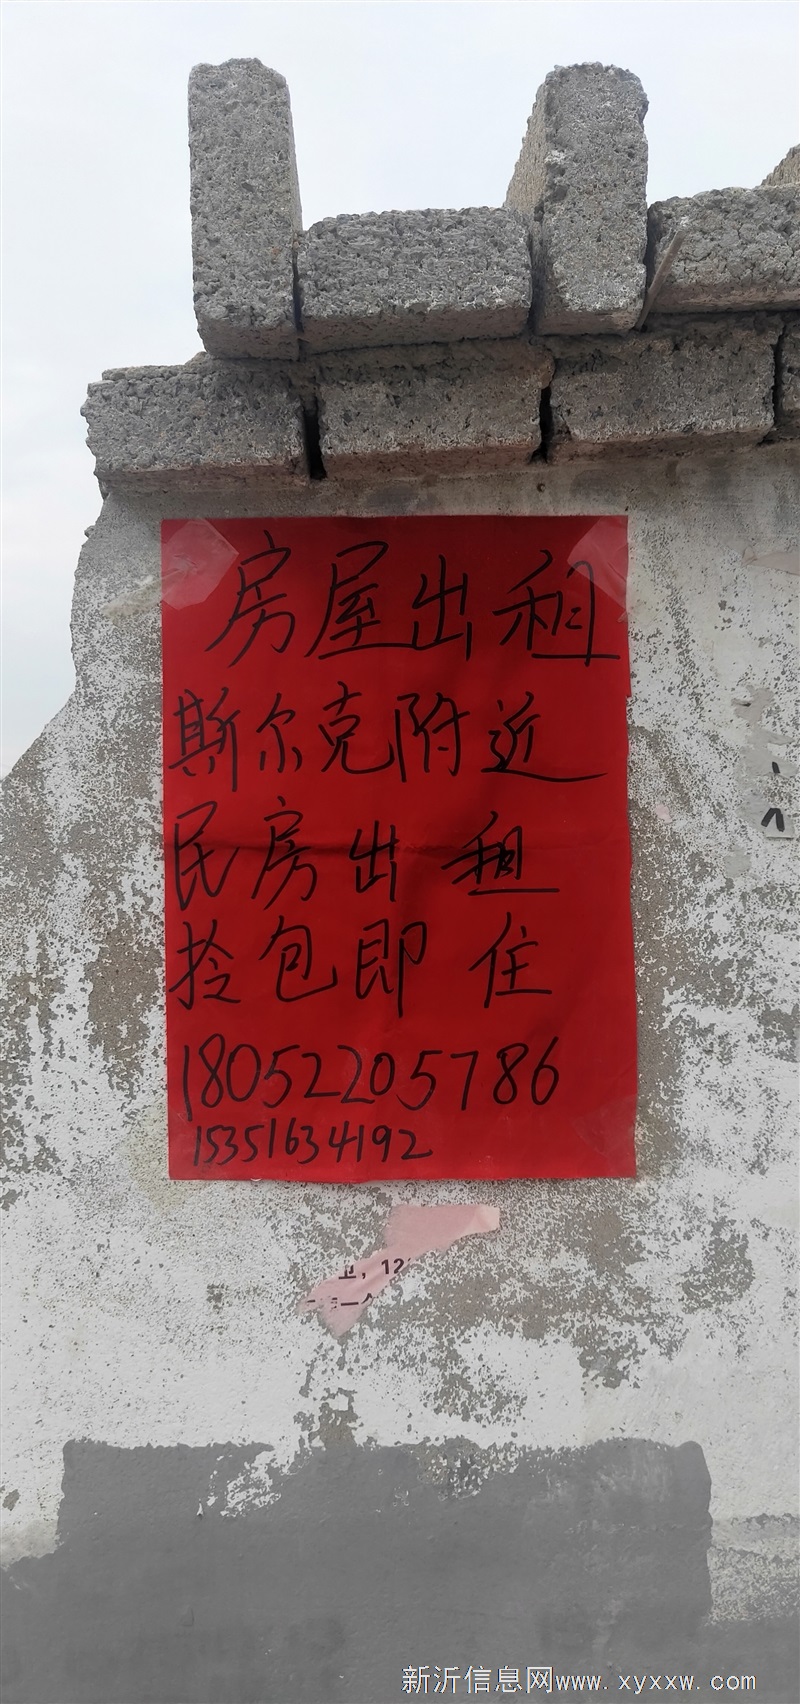 房屋出租
斯尔克附近
民房出租
拎包即住
18052205786
15351634192
卫，12
新沂信息网www.xyxxw.com